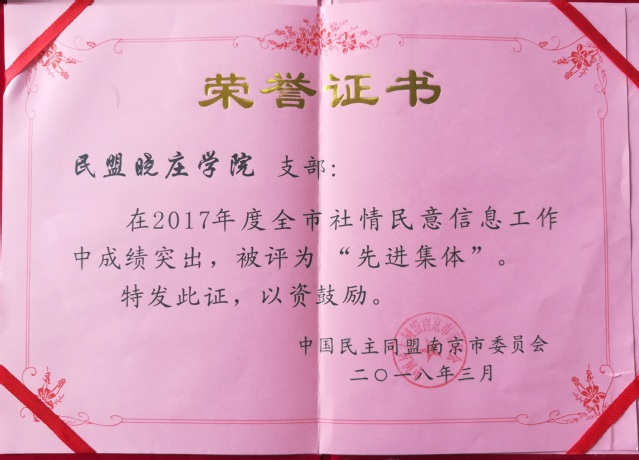 荣誉证书
民盟晓庄学院 支部：
在2017年度全市社情民意信息工作
中成绩突出，被评为“先进集体”。
特发此证，以资鼓励。
中国民主同盟南京市委员会
二〇一八年三月